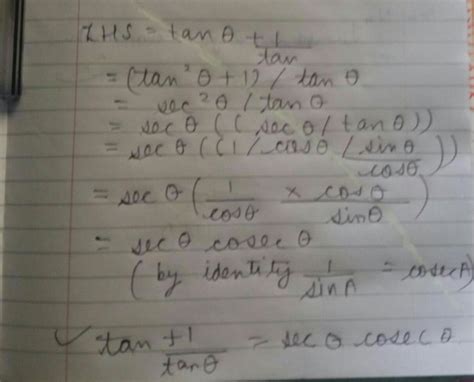 LHS = tanθ + 1/tan
= (tan²θ + 1) / tanθ
= sec²θ / tanθ
= secθ (( secθ / tanθ))
= secθ ((1 / cosθ / sinθ/cosθ))
= secθ (1/cosθ × cosθ/sinθ)
= secθ cosecθ
(by identity 1/sinA = cosecA)
✓ tan + 1/tanθ = secθ cosecθ